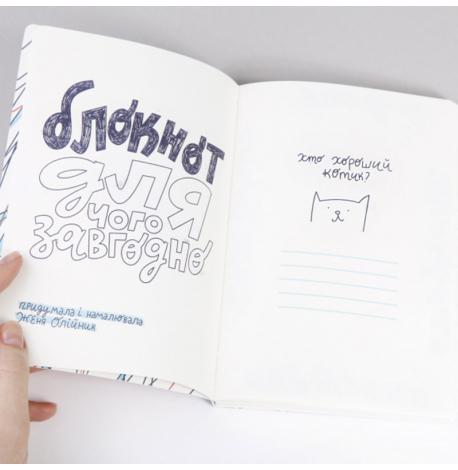 блокнот
для
чого
завгодно
придумала і намалювала
Женя Олійник
хто хороший
котик?